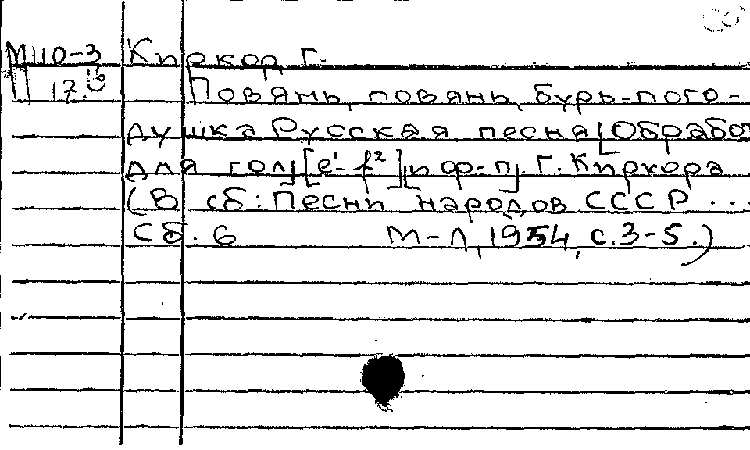 М110-3 Киркор Г.
П 17.
Повянь, повянь, бурь-пого-
душка Русская песня [Обработ
для гол[е¹-f²] и ф-п]. Г. Киркора
(В сб: Песни народов СССР ...
Сб. 6 М-Л, 1954, с.3-5.)